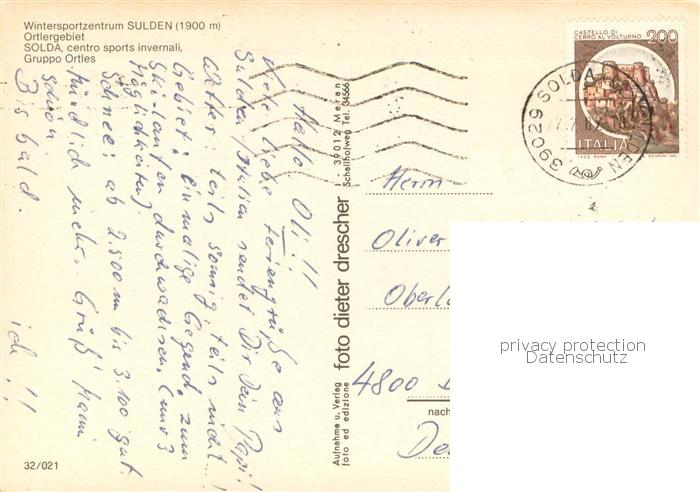 Wintersportzentrum SULDEN (1900 m)
Ortlergebiet
SOLDA, centro sports invernali,
Gruppo Ortles
Hallo Oli!!
Viele liebe Feriengrüße aus
Sulden/Italien sendet Dir Dein Papi!
Wetter teils sonnig, teils nicht!
Gebiet: einmalige Gegend, zum
Ski-laufen durchwachsen (nur 3
Möglichkeiten)
Schnee: ab 2.500 m bis 3.100 gut.
mündlich mehr. Gruß Mami
schön
Bis bald.
ich!!
32/021
Aufnahme u. Verlag
foto ed edizione
foto dieter drescher
39012 Meran
Schallhofweg Tel. 34566
CASTELLO DI
CERRO AL VOLTURNO
200
ITALIA
39029 SOLDA SULDEN
Herrn
Oliver
Oberl
4800
nach
De
privacy protection
Datenschutz